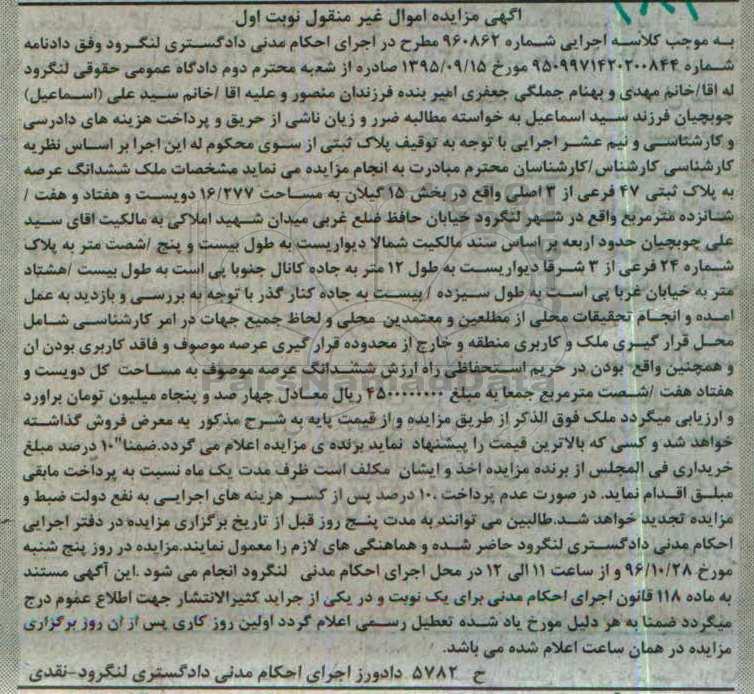 ۱۸۹۲
آگهی مزایده اموال غیر منقول نوبت اول
به موجب کلاسه اجرایی شماره ۹۶۰۸۶۲ مطرح در اجرای احکام مدنی دادگستری لنگرود وفق دادنامه
شماره ۹۵۰۹۹۷۱۴۲۰۲۰۰۸۴۴ مورخ ۱۳۹۵/۰۹/۱۵ صادره از شعبه محترم دوم دادگاه عمومی حقوقی لنگرود
له اقا/خانم مهدی و بهنام جملگی جعفری امیر بنده فرزندان منصور و علیه اقا /خانم سید علی (اسماعیل)
چوبچیان فرزند سید اسماعیل به خواسته مطالبه ضرر و زیان ناشی از حریق و پرداخت هزینه های دادرسی
و کارشناسی و نیم عشر اجرایی با توجه به توقیف پلاک ثبتی از سوی محکوم له این اجرا بر اساس نظریه
کارشناسی کارشناس/کارشناسان محترم مبادرت به انجام مزایده می نماید مشخصات ملک ششدانگ عرصه
به پلاک ثبتی ۴۷ فرعی از ۳ اصلی واقع در بخش ۱۵ گیلان به مساحت ۱۶/۲۷۷ دویست و هفتاد و هفت /
شانزده مترمربع واقع در شهر لنگرود خیابان حافظ ضلع غربی میدان شهید املاکی به مالکیت اقای سید
علی چوبچیان حدود اربعه بر اساس سند مالکیت شمالا دیواریست به طول بیست و پنج /شصت متر به پلاک
شماره ۲۴ فرعی از ۳ شرقا دیواریست به طول ۱۲ متر به جاده کانال جنوبا پی است به طول بیست /هشتاد
متر به خیابان غربا پی است به طول سیزده / بیست به جاده کنار گذر با توجه به بررسی و بازدید به عمل
امده و انجام تحقیقات محلی از مطلعین و معتمدین محلی و لحاظ جمیع جهات در امر کارشناسی شامل
محل قرار گیری ملک و کاربری منطقه و خارج از محدوده قرار گیری عرصه موصوف و فاقد کاربری بودن ان
و همچنین واقع بودن در حریم استحفاظی راه ارزش ششدانگ عرصه موصوف به مساحت کل دویست و
هفتاد هفت /شصت مترمربع جمعا به مبلغ ۴۵۰۰۰۰۰۰۰۰ ریال معادل چهار صد و پنجاه میلیون تومان براورد
و ارزیابی میگردد ملک فوق الذکر از طریق مزایده و از قیمت پایه به شرح مذکور به معرض فروش گذاشته
خواهد شد و کسی که بالاترین قیمت را پیشنهاد نماید برنده ی مزایده اعلام می گردد.ضمنا"۱۰ درصد مبلغ
خریداری فی المجلس از برنده مزایده اخذ و ایشان مکلف است ظرف مدت یک ماه نسبت به پرداخت مابقی
مبلغ اقدام نماید. در صورت عدم پرداخت ۱۰ درصد پس از کسر هزینه های اجرایی به نفع دولت ضبط و
مزایده تجدید خواهد شد.طالبین می توانند به مدت پنج روز قبل از تاریخ برگزاری مزایده در دفتر اجرایی
احکام مدنی دادگستری لنگرود حاضر شده و هماهنگی های لازم را معمول نمایند.مزایده در روز پنج شنبه
مورخ ۹۶/۱۰/۲۸ و از ساعت ۱۱ الی ۱۲ در محل اجرای احکام مدنی لنگرود انجام می شود .این آگهی مستند
به ماده ۱۱۸ قانون اجرای احکام مدنی برای یک نوبت و در یکی از جراید کثیرالانتشار جهت اطلاع عموم درج
میگردد ضمنا به هر دلیل مورخ یاد شده تعطیل رسمی اعلام گردد اولین روز کاری پس از ان روز برگزاری
مزایده در همان ساعت اعلام شده می باشد.
ح ۵۷۸۲ دادورز اجرای احکام مدنی دادگستری لنگرود-نقدی
ParsNamadData